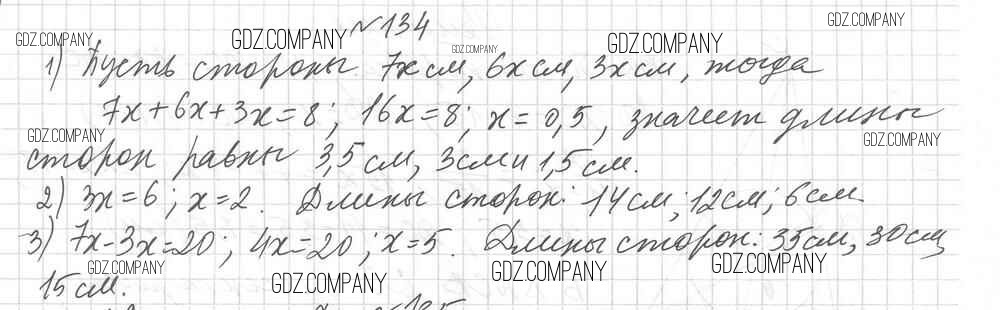 №134
1) Пусть стороны 7x см, 6x см, 3x см, тогда
7x+6x+3x=8; 16x=8; x=0,5, значит длины
сторон равны 3,5 см, 3см и 1,5 см.
2) 3x=6; x=2. Длины сторон: 14см; 12см; 6см.
3) 7x-3x=20; 4x=20; x=5. Длины сторон: 35см, 30см,
15 см.
GDZ.COMPANY
GDZ.COMPANY
GDZ.COMPANY
GDZ.COMPANY
GDZ.COMPANY
GDZ.COMPANY
GDZ.COMPANY
GDZ.COMPANY
GDZ.COMPANY
GDZ.COMPANY
GDZ.COMPANY